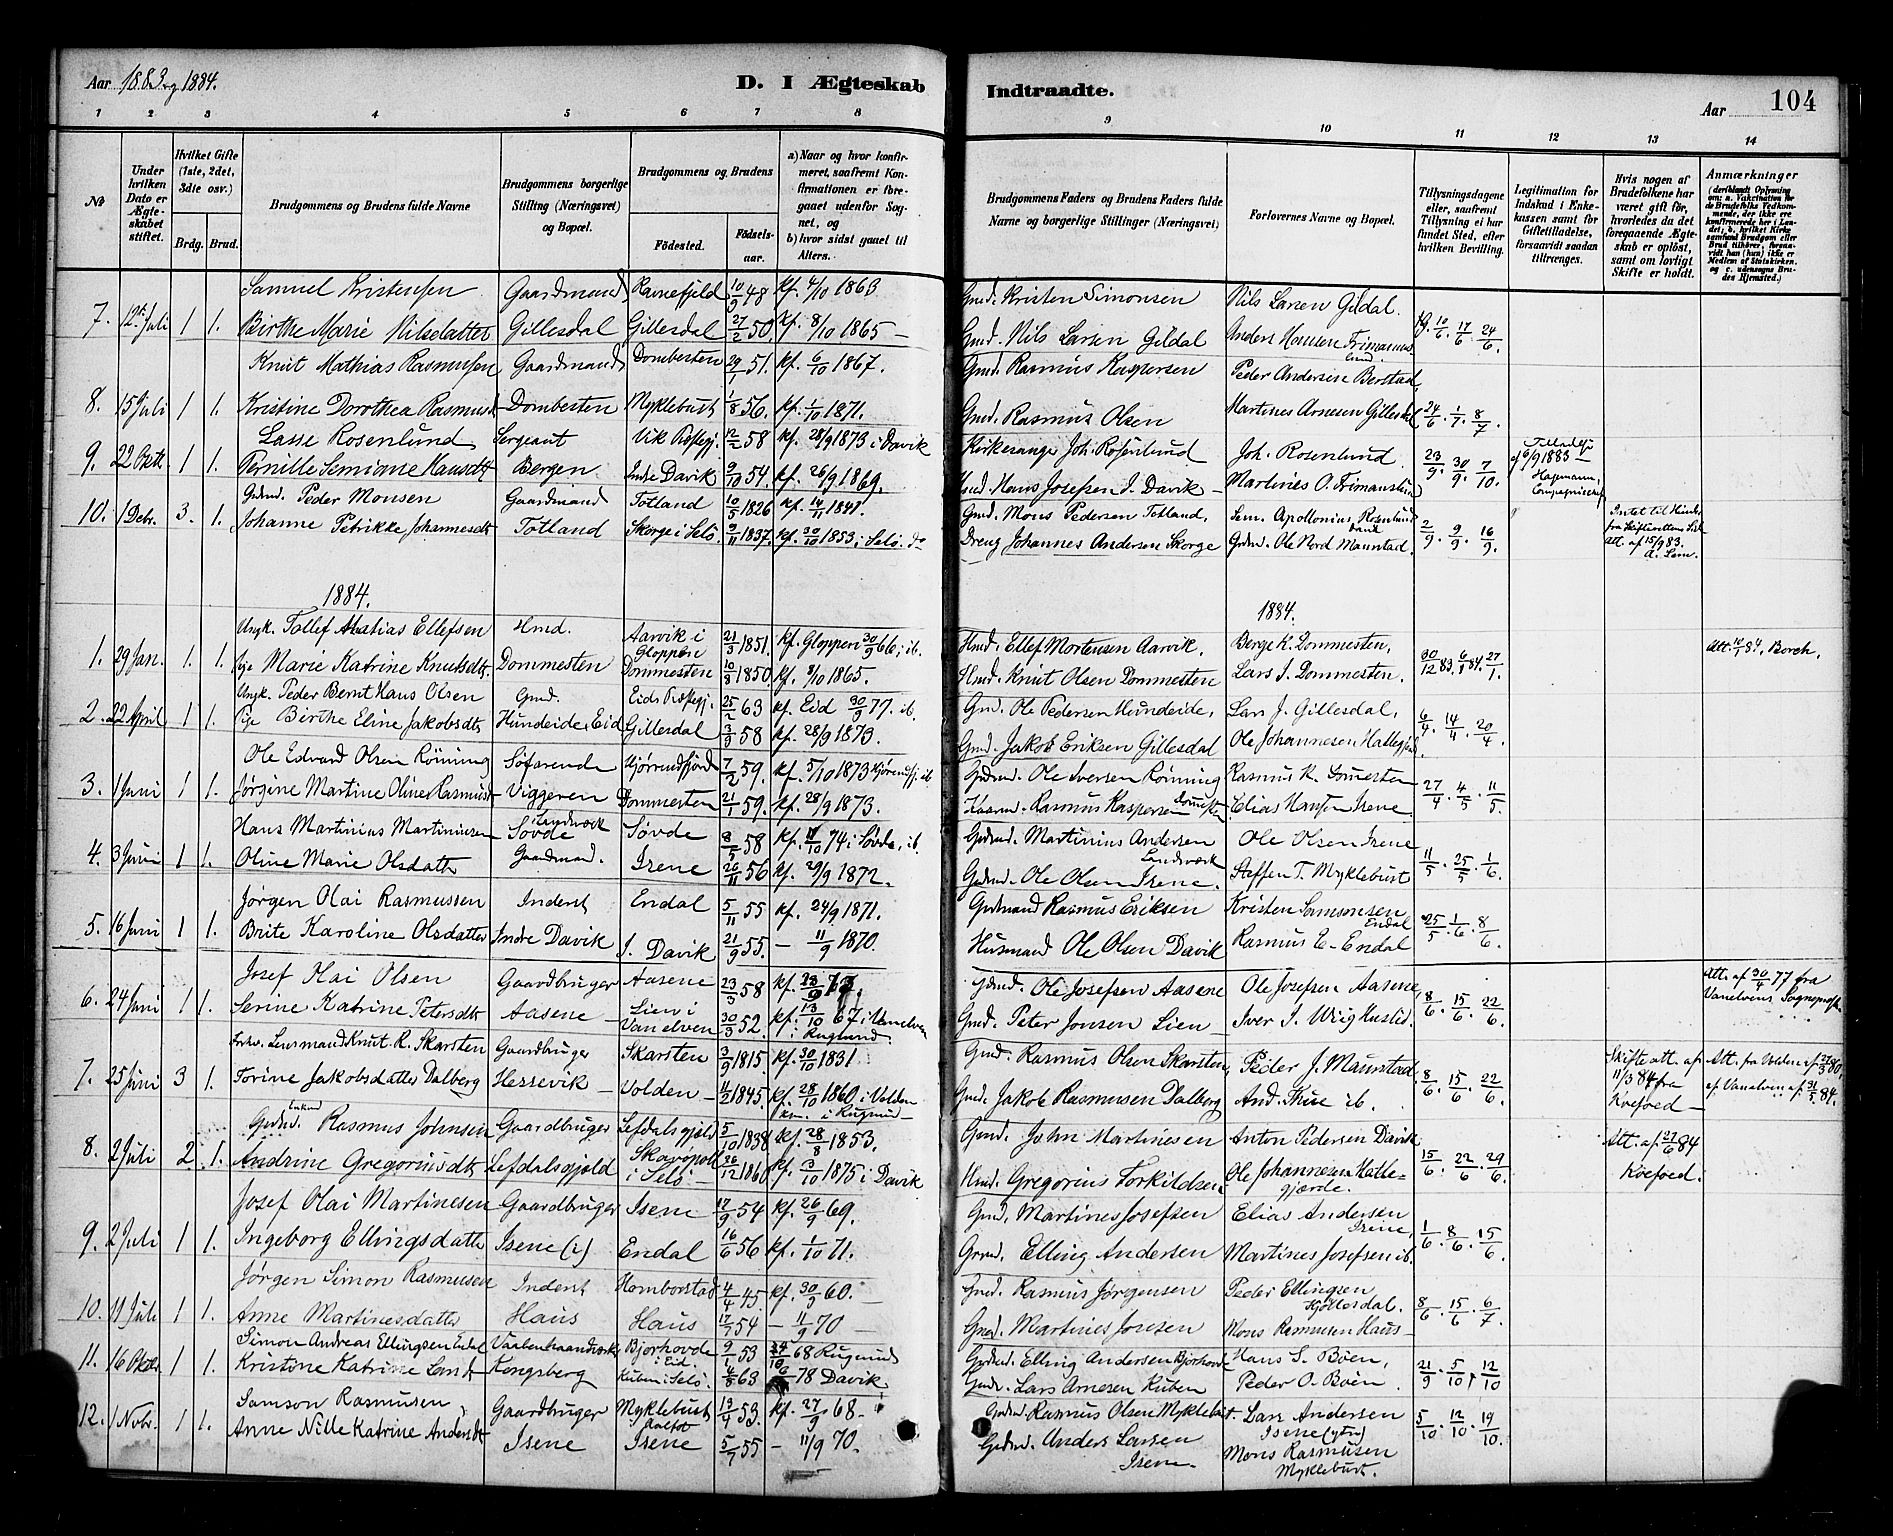 Aar 1883 og 1884.
D. I Ægteskab Indtraadte.
Aar 104
1 2 3 4 5 6 7 8 9 10 11 12 13 14
No
Under hvilken Dato er Ægteskabet stiftet.
Hvilket Gifte (1ste, 2det, 3die osv.)
Brdg. Brud.
Brudgommens og Brudens fulde Navne
Brudgommens borgerlige Stilling (Næringsvei) og Bopæl.
Brudgommens og Brudens
Fødested. Fødselsaar.
a) Naar og hvor konfirmeret, saafremt Konfirmationen er foregaaet udenfor Sognet, og
b) hvor sidst gaaet til Alters.
Brudgommens Faders og Brudens Faders fulde Navne og borgerlige Stillinger (Næringsvei)
Forlovernes Navne og Bopæl.
Tillysningsdagene eller, saafremt Tillysning ei har fundet Sted, efter hvilken Bevilling.
Legitimation for Indskud i Enkekassen samt for Giftetilladelse, forsaavidt saadan tiltrænges.
Hvis nogen af Brudefolkene har været gift før, hvorledes da det foregaaende Ægteskab er opløst, samt om lovligt Skifte er holdt.
Anmærkninger
Samuel Kristensen Gaardmand Ravnefjeld 10/9 48 kf. 4/10 1863 Gmd. Kristen Simonsen Nils Larsen Gildal.
7. 12te Juli 1 1. Birthe Marie Nilsdatter Gillesdal Gillesdal 27/2 50. kf. 8/10 1865 – Gmd. Nils Larsen Gildal 10/6. 17/6. 24/6.
Knut Mathias Rasmussen Gaardmand Dombesten 29/1 51. kf. 6/10 1867. Gmd. Rasmus Kaspersen Peder Andersen Berstad
8. 15 Juli 1 1. Kristine Dorothea Rasmusd. Dombesten Myklebust 1/8 56. kf. 1/10 1871. Gmd. Rasmus Olsen Martines Arnesen Gillesdal 24/6. 1/7. 8/7
Lasse Rosenlund Sergeant Vik Præstegj. 12/2 58 kf. 28/9 1873 i Davik Kirkesanger Joh. Rosenlund Joh. Rosenlund Tilladelse
9. 22 Oktr. 1 1. Pernille Semione Hansdtr Bergen Indre Davik 9/10 54. kf. 26/9 1869. Hmd. Hans Josefsen I. Davik – Martines O. Frimanslund 23/9. 30/9. 7/10. af 6/9 1883 – Hagemann, Compagnichef
Gdmd. Peder Monsen Gaardmand Totland 10/5 1826 kf. 14/4 1841. Gmd. Mons Pedersen Totland, Sem. Apollonius Rosenlund Intet til Hinder
10. 1 Debr. 3. 1. Johanne Petrikke Johannesdt Totland Skorge i Selø 9/11 1837. kf. 30/10 1853 i Selø. do Dreng Johannes Andersen Skorge Gdmd. Ole Nord Maurstad. 2/9. 9/9. 16/9. fra Skifterettens Side Att. af 15/9 83.
1884. 1884.
Ungk. Tollef Matias Ellefsen Hmd. Aarvik i Gloppen 21/3 1851. kf. Gloppen 30/9 66, ib. Hmd. Ellef Mortensen Aarvik. Berge K. Dommesten,
1. 29 Jan. 1. 1. Pige Marie Katrine Knutsdtr. Dommesten Dommesten 10/3 1850. kf. 8/10 1865. Hmd. Knut Olsen Dommesten Lars I. Dommesten. 30/12 83. 6/1 84. 27/1. Att. 10/1 84, Borch.
Ungk. Peder Bernt Hans Olsen Gmd. Eids Præstegj. 25/2 63 kf. Eid 30/9 77. ib. Gmd. Ole Pedersen Hundeide, Lars J. Gillesdal,
2. 22 April 1 1. Pige Birthe Eline Jakobsdtr Hundeide, Eid Gillesdal 3/9 58 kf. 28/9 1873. Gmd. Jakob Eriksen Gillesdal Ole Johannesen Hallegjerd 6/4. 14/4. 20/4.
Ole Edvard Olsen Rönning Søfarende Hjørrendfjord 7/2 59. kf. 5/10 1873 Hjørendfj. ib. Gdmd. Ole Iversen Rönning Rasmus R. Domesten
3. 1 Juni 1 1. Jørgine Martine Oline Rasmusd. Viggeren Dommesten 21/1 59. kf. 28/9 1873. Kaarm. Rasmus Kaspersen Domesten Elias Hansen Isene 27/4. 4/5. 11/5
Hans Martinius Martiniusen Søvde Søvde 8/5 58 kf. 11/10 74 i Søvde, ib. Gdmd. Martinius Andersen Ole Olsen Isene
4. 3 Juni 1 1. Oline Marie Olsdatter Gaardmand. Isene 26/11 56 kf. 29/9 1872. Gdmd. Ole Olsen Isene. Steffen T. Myklebust 11/5. 25/5. 1/6.
Jørgen Olai Rasmussen Inderst Endal 5/11 55 kf. 24/9 1871. Gdmand Rasmus Eriksen Kristen Samsonsen Endal
5. 16 Juni 1 1. Brite Karoline Olsdatter Indre Davik I. Davik 21/9 55. – 11/9 1870. Husmand Ole Olsen Davik Rasmus E. Endal 25/5. 1/6. 8/6.
Josef Olai Olsen Gaardbruger Aasene 23/3 58 kf. 28/9 73. Gdmd. Ole Josefsen Aasene Ole Josefsen Aasene, Att. af 30/4 77 fra
6. 24 Juni 1 1. Serine Katrine Petersdtr Aasene – Lien i Vanelven 30/3 52. kf. 13/10 67 i Vanelven i Rugsund. Gmd. Peter Jonsen Lien Iver I. Wiig Husted. 8/6. 15/6. 22/6. Vanelvens Sognepræst
Forhv. Lensmand Knut R. Skarsten Gaardbruger Skarsten 3/9 1815. kf. 30/10 1831. Gmd. Rasmus Olsen Skarsten, Peder J. Maurstad Skifteatt. af Att. fra Volden af 27/3 80
7. 25 Juni 3 1. Torine Jakobsdatter Dalberg Hessevik – Volden – 11/2 1845. kf. 28/10 1860 i Volden kom. i Rugsund – Gmd. Jakob Rasmusen Dalberg And. Thue ib. 8/6. 15/6. 22/6. 11/3 84 fra Koefoed – af Vanelven af 31/5 84.
Gdmd. Enkmd. Rasmus Johnsen Gaardbruger Lefdalsgjeld 5/10 1838 kf. 28/8 1853. Gmd. John Martinesen Anton Pedersen Davik Att. af 27/6 84
8. 2 Juli 2. 1. Andrine Gregoriusdtr Lefdalsgjeld Skavøpoll i Selø – 26/12 1860 kf. 3/10 1875 i Davik Hmd. Gregorius Torkildsen Ole Johannesen Hallegjærde. 15/6. 22/6. 29/6. Koefoed.
Josef Olai Martinesen Gaardbruger Isene 17/9 54 kf. 26/9 69. Gmd. Martines Josefsen Elias Andersen Isene,
9. 2 Juli 1 1. Ingeborg Ellingsdatter Isene (i) Endal 16/6 56 kf. 1/10 71. Gmd. Elling Andersen Martines Josefsen ib. 1/6. 8/6. 15/6.
Jørgen Simon Rasmusen Inderst Homborstad 4/4 45 kf. 30/9 60. – Gmd. Rasmus Jørgensen Peder Ellingsen Hjöllesdal.
10. 11 Juli 1 1. Anne Martinesdatter Haus Haus 17/7 54 – 11/9 70 – Gmd. Martines Jonsen Mons Rasmusen Haus – 8/6. 15/6. 6/7
Simon Andreas Ellingsen Endal Vaabenhaandverk. Bjorhovde i Eid. 9/1 53 24/10 68 Rugsund Gdmd. Elling Andersen Bjorhovde Hans S. Böen,
11. 16 Oktbr. 1 1. Kristine Katrine Larsdt Kongsberg Kuben i Selø. 4/8 63 6/10 78 Davik. Gmd. Lars Arnesen Kuben Peder O. Böen. 21/9. 5/10. 12/10
Samson Rasmusen, Gaardbruger Myklebust 13/4 53. kf. 27/9 68 – Gdmd. Rasmus Olsen Myklebust. Lars Andersen Isene (ytre)
12. 1 Novbr. 1 1. Anne Nille Katrine Andersdt Isene Isene 5/7 55 – 11/9 70. Gdmd. Anders Larsen Isene. Mons Rasmusen Myklebust. 5/10. 12/10. 19/10.